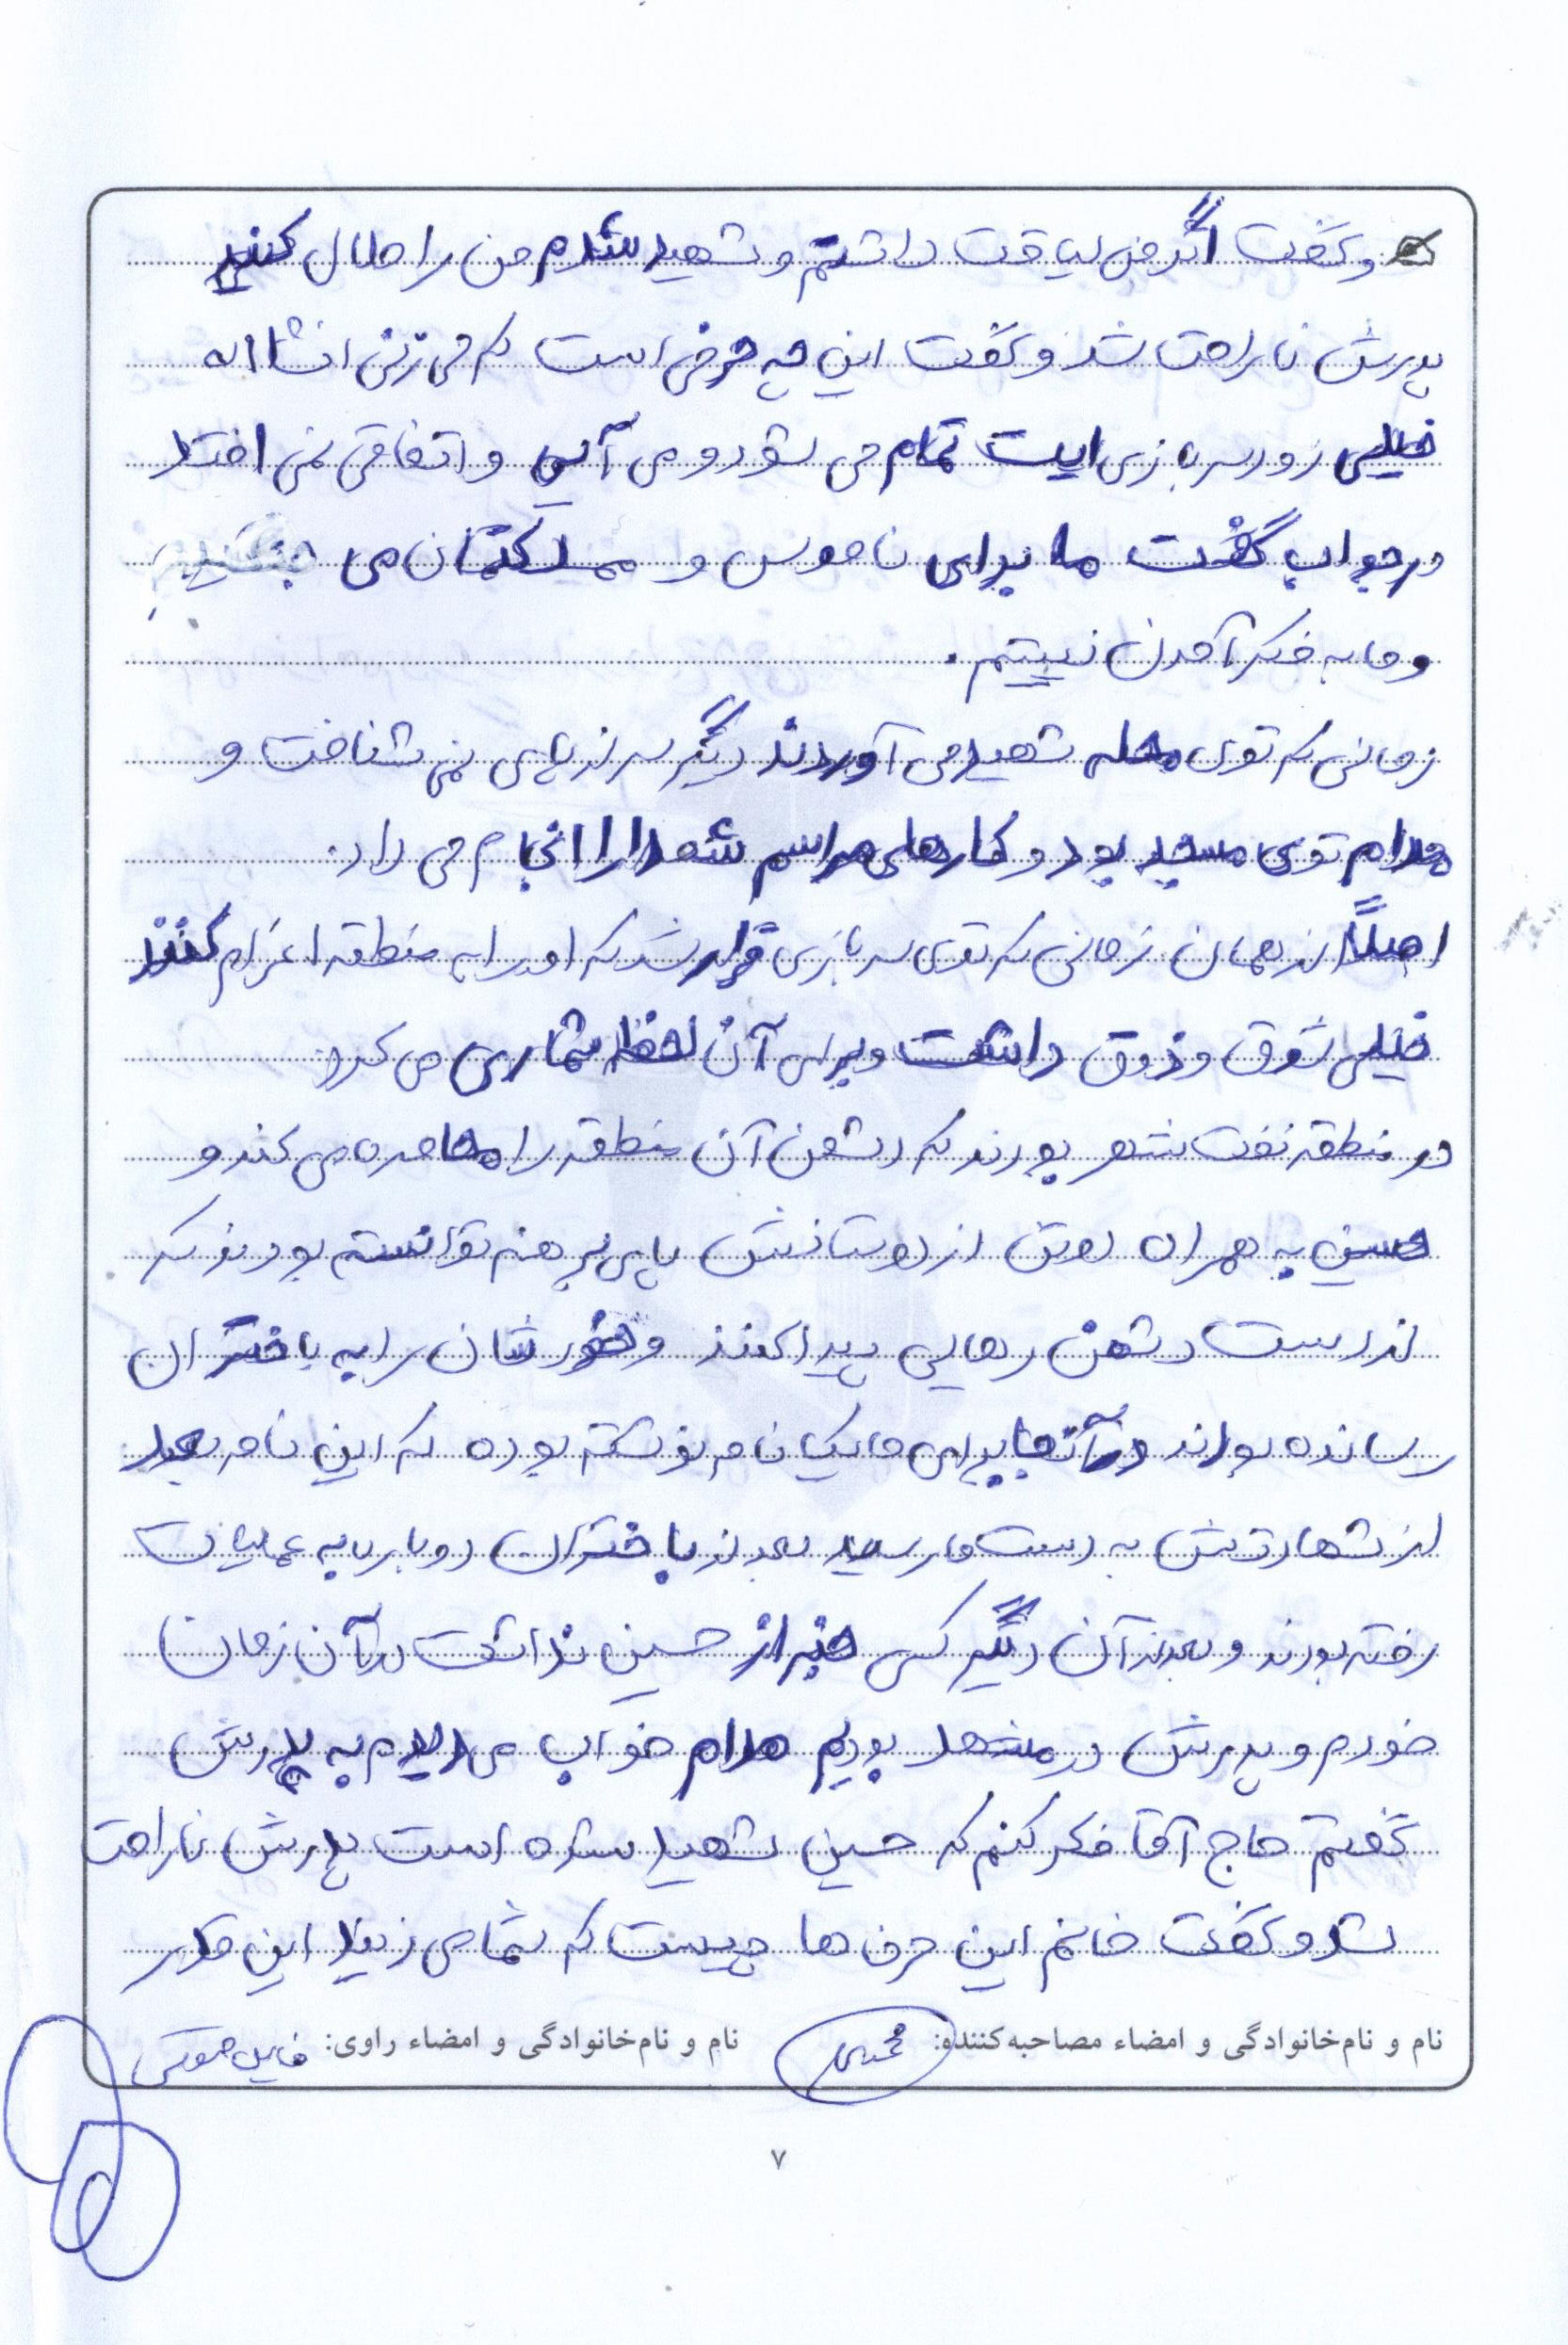 و گفت اگر من لیاقت داشتم و شهید شدم من را حلال کنید
پدرش ناراحت شد و گفت این چه حرفی است که می زنی انشااله
خیلی زود سربازی ایت تمام می شود و می آیی و اتفاقی نمی افتد
در جواب گفت ما برای ناموس و مملکتمان می جنگیم
و ما به فکر آمدن نیستیم.
زمانی که توی محله شهید می آوردند دیگر سر از پای نمی شناخت و
مدام توی مسجد بود و کارهای مراسم شهدا را انجام می داد.
اصلاً از همان زمانی که توی سربازی قرار شد که او را به منطقه اعزام کنند
خیلی شوق و ذوق داشت و برای آن لحظه شماری می کرد.
در منطقه نفت شهر بودند که دشمن آن منطقه را محاصره می کند و
حسین به همراه دوتن از دوستانش با پای برهنه توانسته بودند که
از دست دشمن رهایی پیدا کنند و خودشان را به باختران
رسانده بودند در آنجا برای ما یک نامه نوشته بوده که این نامه بعد
از شهادتش به دست ما رسید بعد از باختران دوباره به عملیات
رفته بودند و بعد از آن دیگر کسی خبر از حسین نداشت در آن زمان
خودم و پدرش در مشهد بودیم مدام خواب می دیدم به پدرش
گفتم حاج آقا فکر کنم که حسین شهید شده است پدرش ناراحت
شد و گفت خانم این حرف ها چیست که شما می زنید این قدر
نام و نام‌خانوادگی و امضاء مصاحبه‌کننده: نام و نام‌خانوادگی و امضاء راوی:
۷